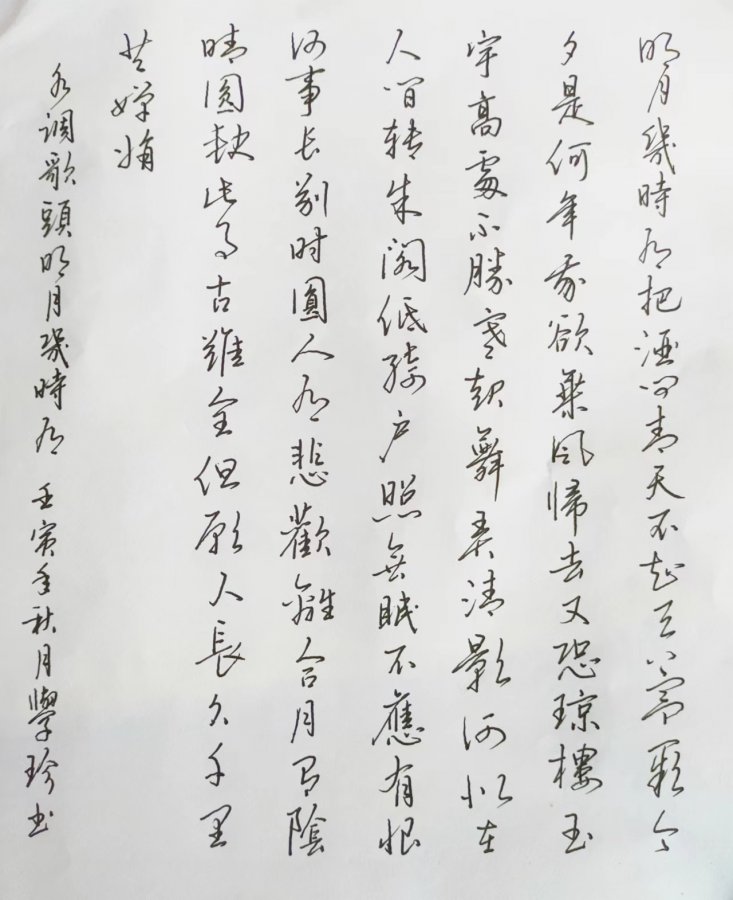 明月幾時有把酒问青天不知天上宫闕今
夕是何年我欲乘风歸去又恐琼樓玉
宇高處不勝寒起舞弄清影何似在
人间转朱阁低绮户照無眠不應有恨
何事长别时圓人有悲歡離合月有陰
晴圓缺此事古難全但願人長久千里
共嬋娟
水调歌頭明月幾時有 壬寅年秋月學珍书